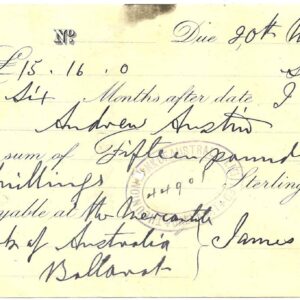 No Due 20th
£15.16.0
Six Months after date I
Andrew Austin
sum of Fifteen pound
hillings Sterling
yable at the Mercantile
k of Australia James
Ballarat